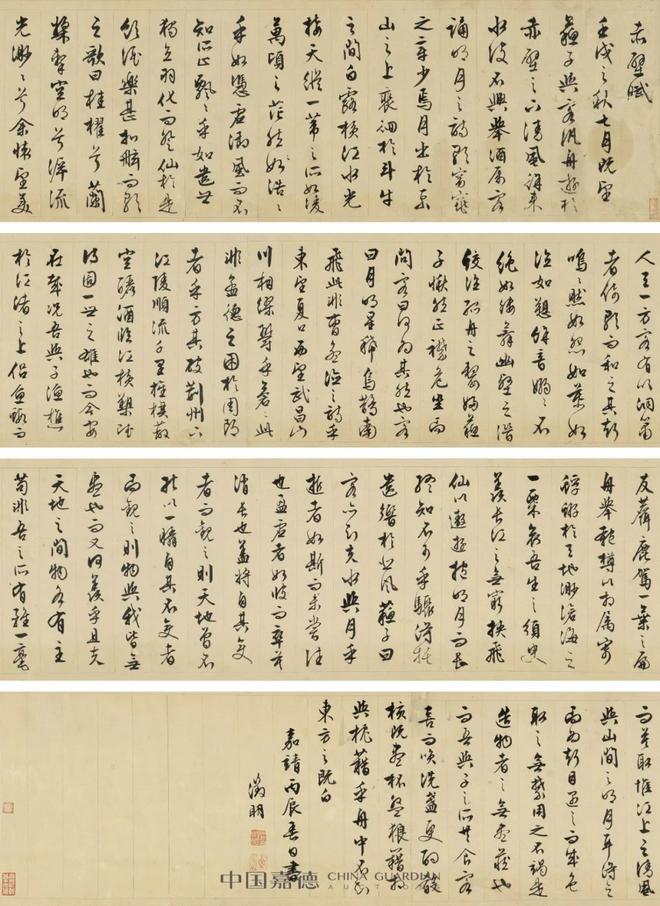 赤壁賦
壬戌之秋七月既望
蘇子與客汎舟遊於
赤壁之下清風徐來
水波不興舉酒屬客
誦明月之詩歌窈窕
之章少焉月出於東
山之上裴徊於斗牛
之間白露橫江水光
接天縱一葦之所如凌
萬頃之茫然浩浩
乎如憑虛御風而不
知所止飄飄乎如遺世
獨立羽化而登仙於是
飲酒樂甚扣舷而歌
之歌曰桂櫂兮蘭
槳擊空明兮泝流
光渺渺兮余懷望美
人兮一方客有吹洞簫
者倚歌而和之其聲
嗚嗚然如怨如慕如
泣如愬餘音嫋嫋不
絕如縷舞幽壑之潛
蛟泣孤舟之嫠婦蘇
子愀然正襟危坐而
問客曰何為其然也客
曰月明星稀烏鵲南
飛此非曹孟德之詩乎
東望夏口西望武昌山
川相繆鬱乎蒼蒼此
非孟德之困於周郎
者乎方其破荊州下
江陵順流千里旌旗蔽
空釃酒臨江橫槊賦
詩固一世之雄也而今安
在哉況吾與子漁樵
於江渚之上侶魚蝦而
友麋鹿駕一葉之扁
舟舉匏樽以相屬寄
蜉蝣於天地渺滄海之
一粟哀吾生之須臾
羨長江之無窮挾飛
仙以遨遊抱明月而長
終知不可乎驟得托
遺響於悲風蘇子曰
客亦知夫水與月乎
逝者如斯而未嘗往
也盈虛者如彼而卒莫
消長也蓋將自其變
者而觀之則天地曾不
能以一瞬自其不變者
而觀之則物與我皆無
盡也而又何羨乎且夫
天地之間物各有主
苟非吾之所有雖一毫
而莫取惟江上之清風
與山間之明月耳得之
而為聲目遇之而成色
取之無禁用之不竭是
造物者之無盡藏也
而吾與子之所共食客
喜而笑洗盞更酌餚
核既盡杯盤狼籍相
與枕藉乎舟中不知
東方之既白
嘉靖丙辰春日書
徵明
中国嘉德 CHINA GUARDIAN
AUCTIONS